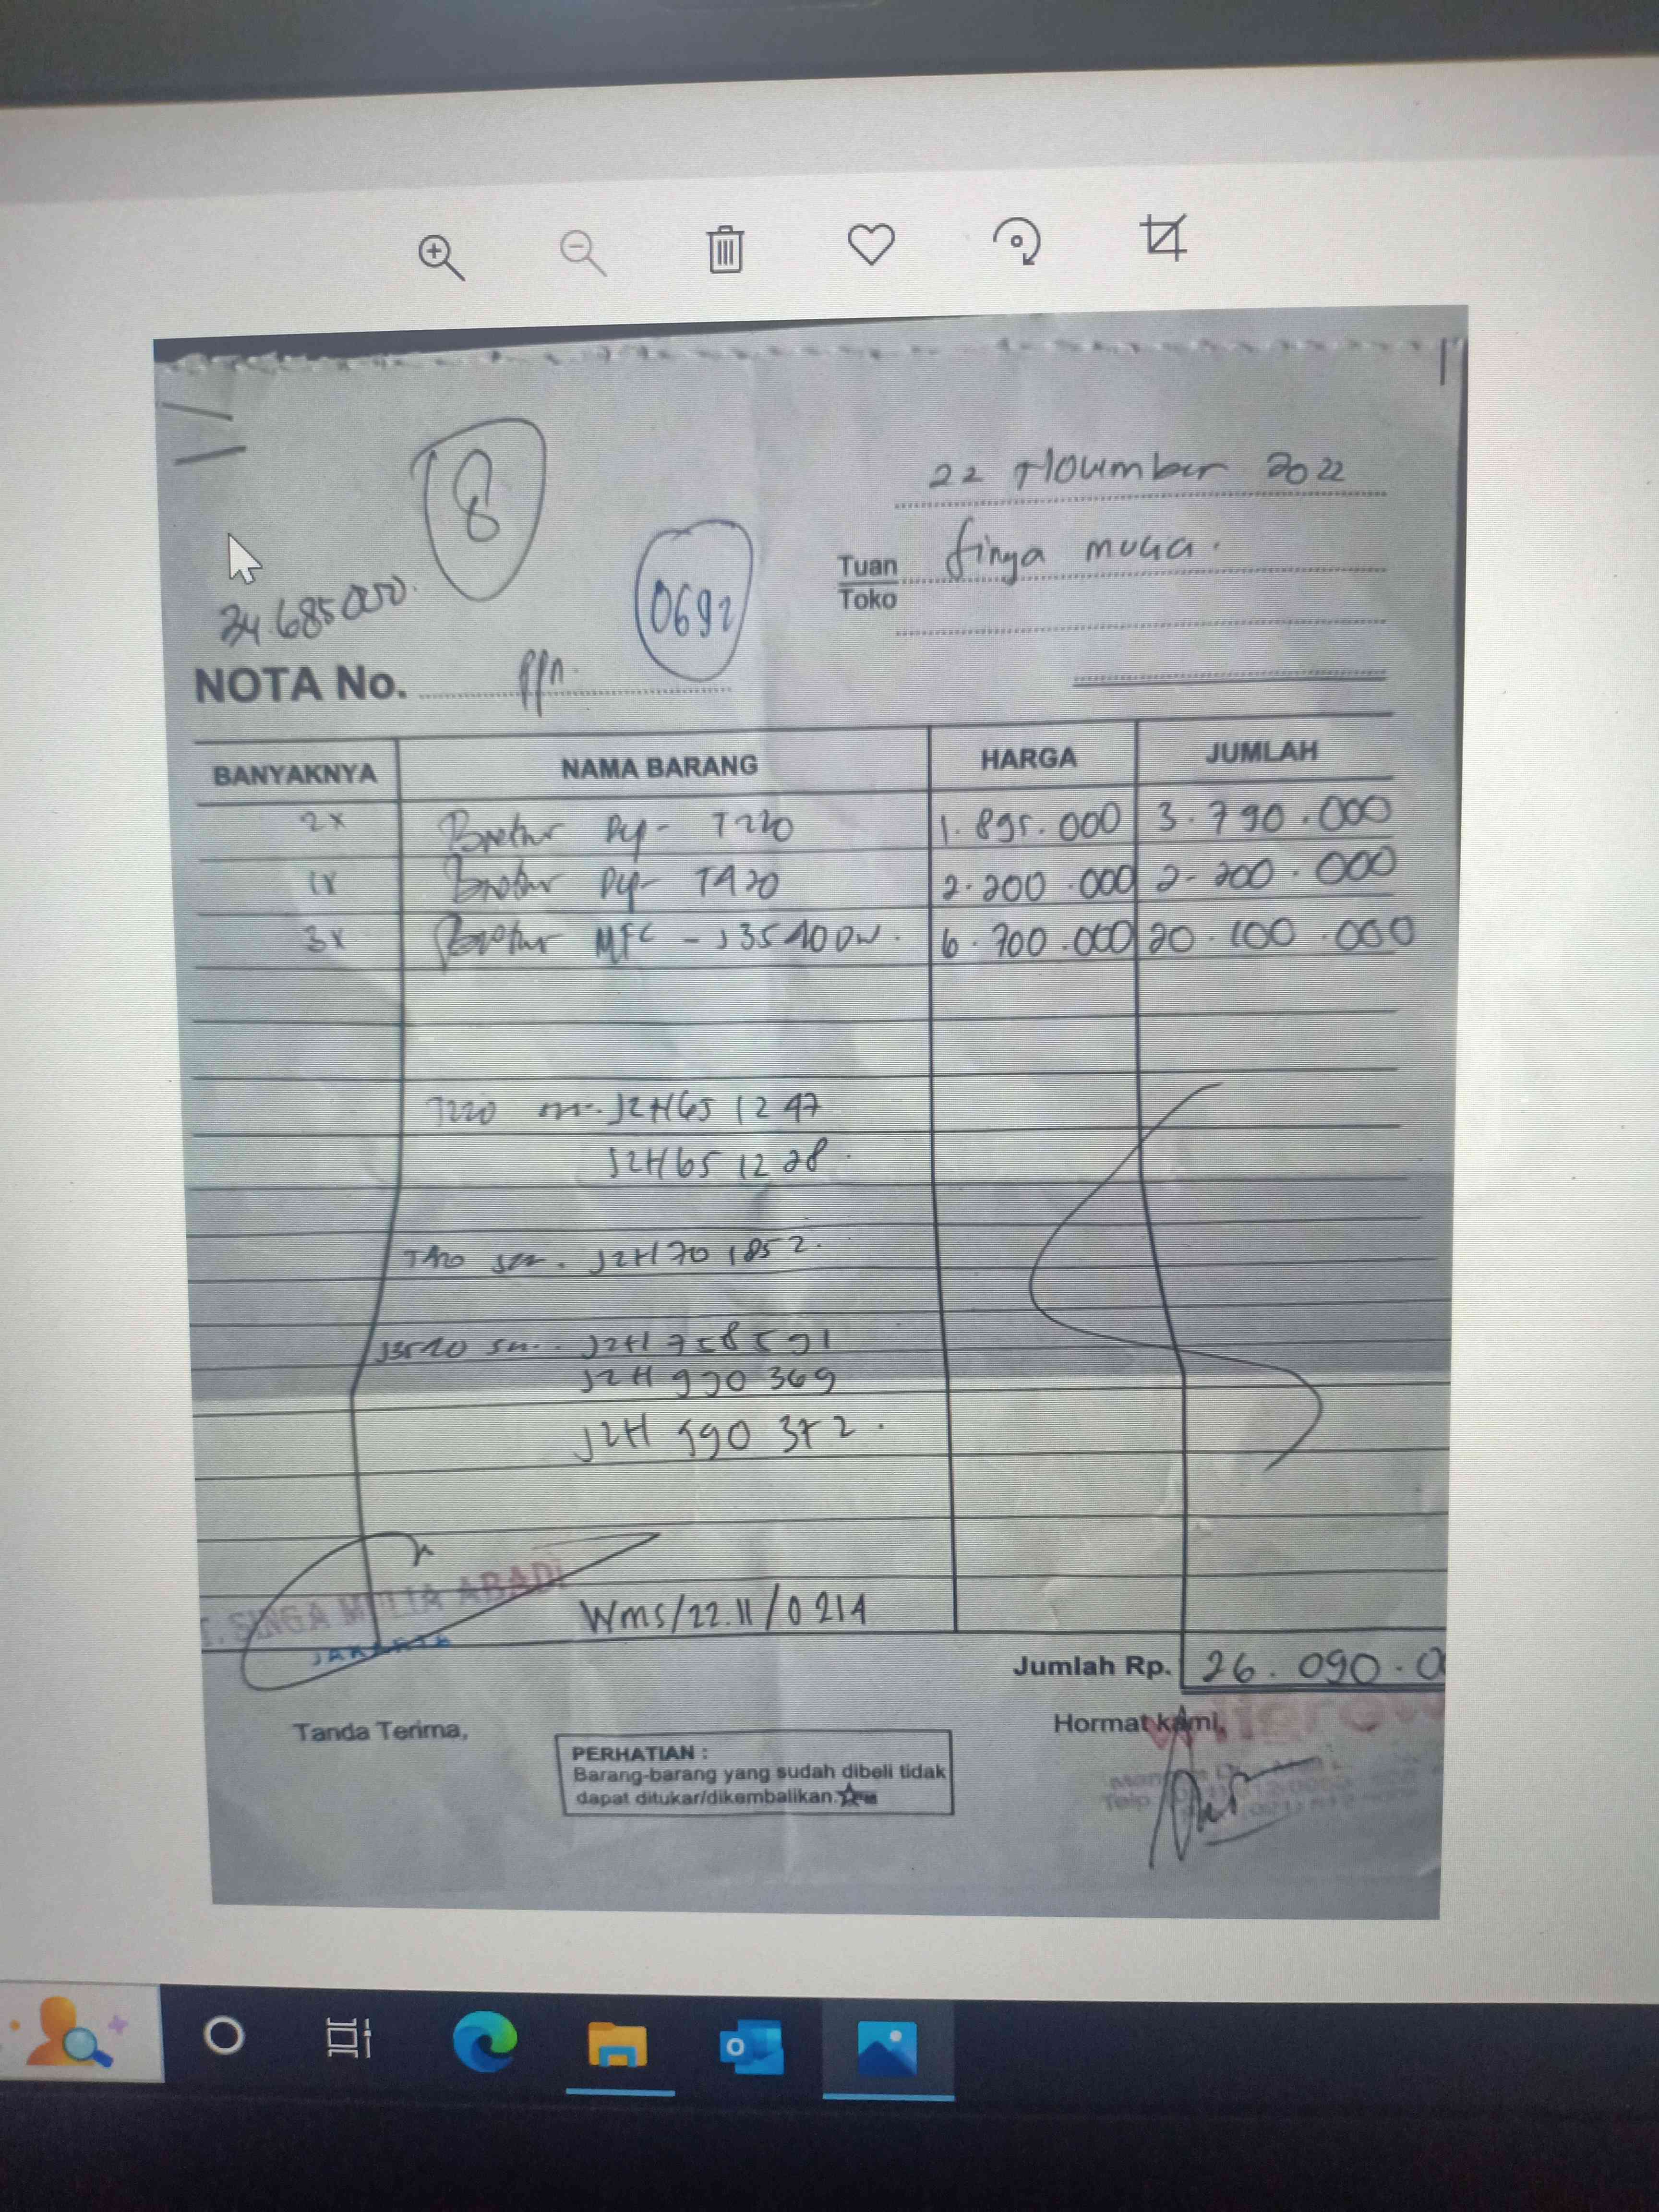 8
22 November 2022
Tuan
Toko
Singa mulia.
34.685000.
0692
NOTA No. ppn.
BANYAKNYA NAMA BARANG HARGA JUMLAH
2x Brother Dcp- T220 1.895.000 3.790.000
1x Brother Dcp- T420 2.200.000 2.200.000
3x Brother MFC - J3540DW. 6.700.000 20.100.000
T220 sn. J2H651247
J2H651228.
T420 sn. J2H701852.
J3540 sn. J2H758591
J2H990369
J2H 990 372.
T. SINGA MULIA ABADI
JAKARTA
Wms/22.11/0214
Jumlah Rp. 26.090.0
Tanda Terima,
Hormat kami,
PERHATIAN :
Barang-barang yang sudah dibeli tidak
dapat ditukar/dikembalikan.
Telp.